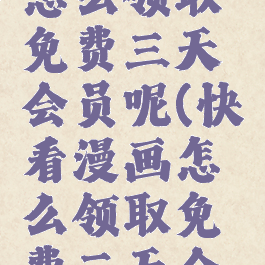 怎么领取
免费三天
会员呢(快
看漫画怎
么领取免
费三天会